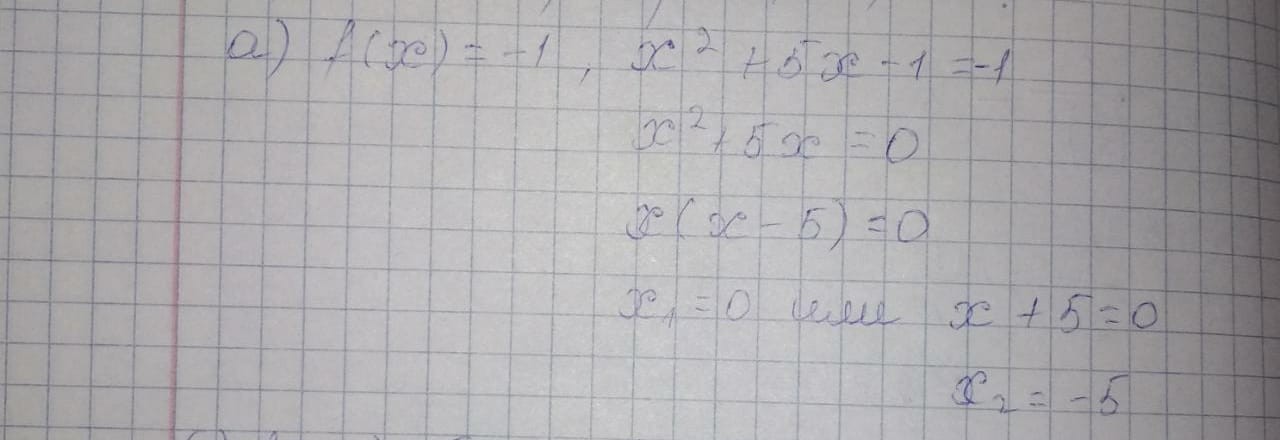 а) f(x) = -1, x² + 5x - 1 = -1
x² + 5x = 0
x(x - 5) = 0
x₁ = 0 или x + 5 = 0
x₂ = -5